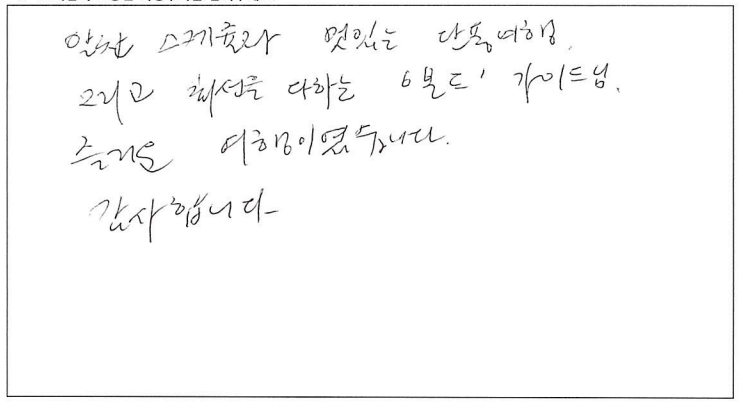 알찬 스케쥴과 멋있는 단풍여행,
그리고 최선을 다하는 '볼드' 가이드님.
즐거운 여행이였습니다.
감사합니다-